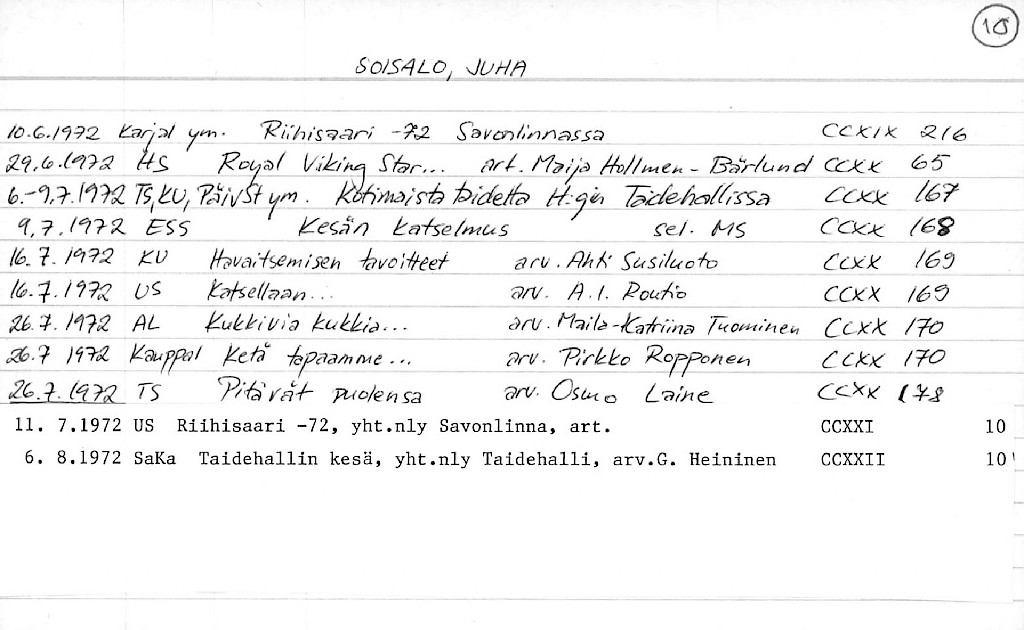 10
SOISALO, JUHA
10.6.1972 Karjal ym. Riihisaari -72 Savonlinnassa CCXIX 216
29.6.1972 HS Royal Viking Star... art. Maija Hollmen-Bärlund CCXX 65
6.-9.7.1972 TS, KU, PäivSt ym. Kotimaista taidetta H:gin Taidehallissa CCXX 167
9.7.1972 ESS Kesän katselmus sel. MS CCXX 168
16.7.1972 KU Havaitsemisen tavoitteet arv. Ahti Susiluoto CCXX 169
16.7.1972 US Katsellaan... arv. A.I. Routio CCXX 169
26.7.1972 AL Kukkivia kukkia... arv. Maila-Katriina Tuominen CCXX 170
26.7 1972 Kauppal Ketä tapaamme... arv. Pirkko Ropponen CCXX 170
26.7.1972 TS Pitävät puolensa arv. Osmo Laine CCXX 178
11. 7.1972 US Riihisaari -72, yht.nly Savonlinna, art. CCXXI 10
6. 8.1972 SaKa Taidehallin kesä, yht.nly Taidehalli, arv.G. Heininen CCXXII 10